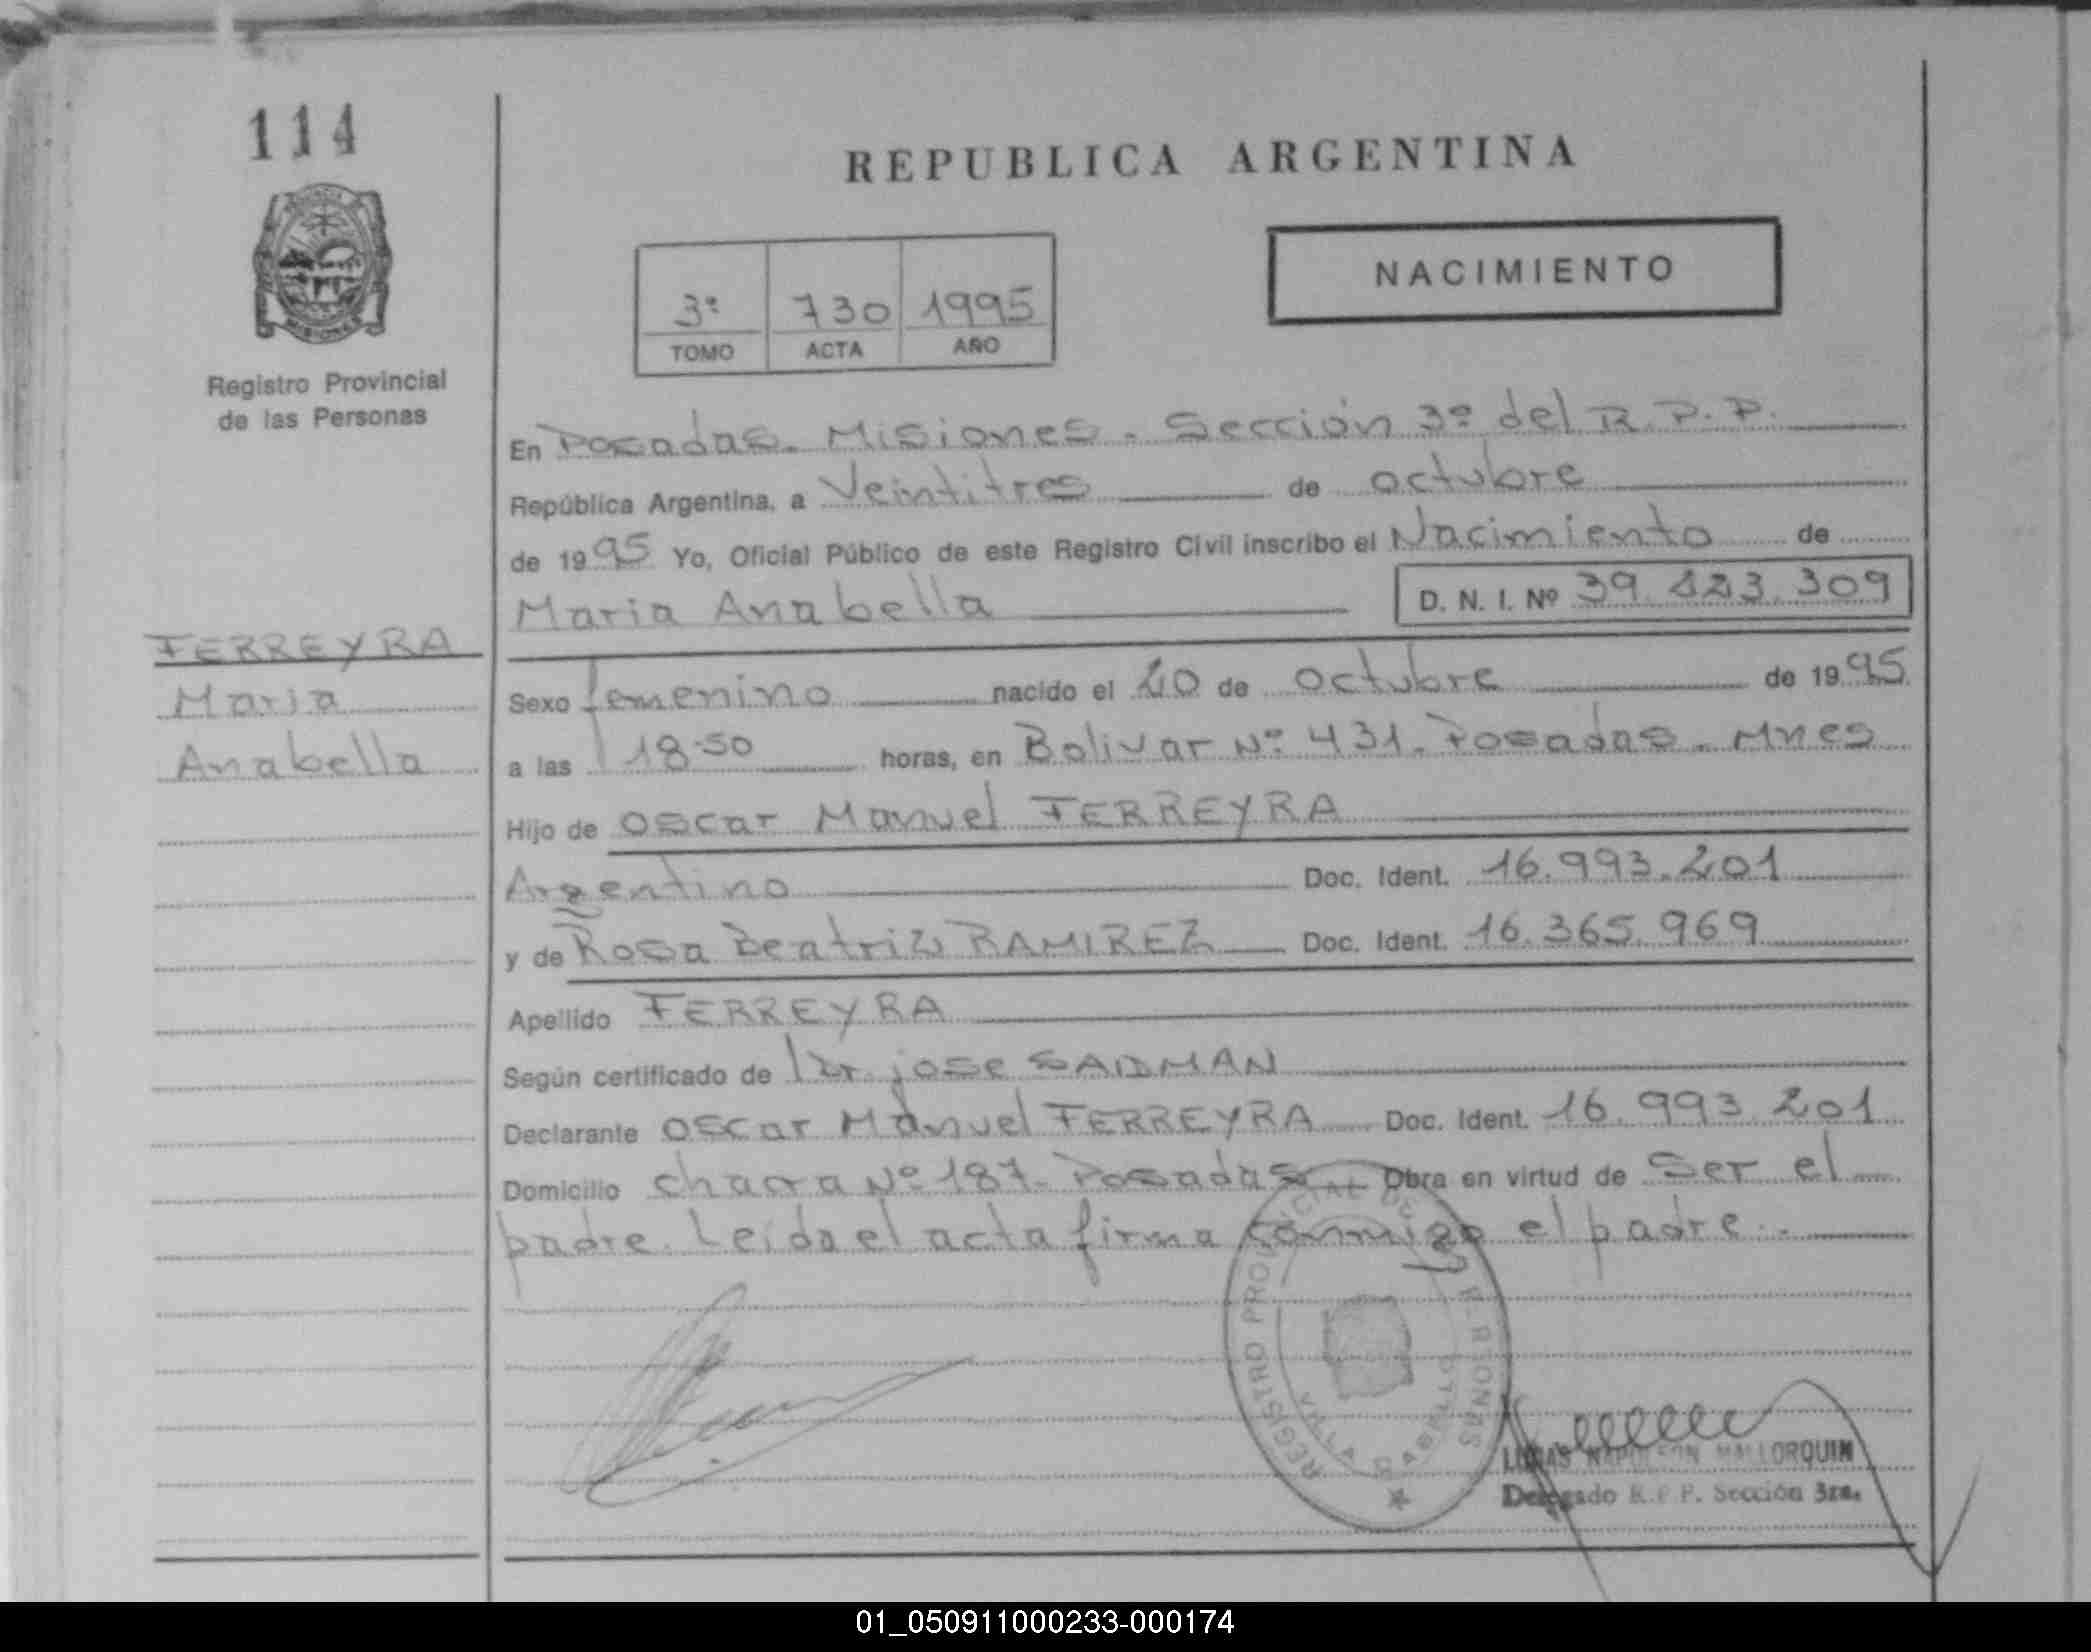 114
REPUBLICA ARGENTINA
NACIMIENTO
3º 730 1995
TOMO ACTA AÑO
MISIONES
Registro Provincial
de las Personas
En Posadas. Misiones. Sección 3º del R.P.P.
República Argentina, a Veintitres de octubre
de 1995 Yo, Oficial Público de este Registro Civil inscribo el Nacimiento de
Maria Anabella D. N. I. Nº 39.223.309
FERREYRA
Maria
Anabella
Sexo femenino nacido el 20 de octubre de 1995
a las 18.50 horas, en Bolivar Nº 431. Posadas. Mnes
Hijo de Oscar Manuel FERREYRA
Argentino Doc. Ident. 16.993.201
y de Rosa Beatriz RAMIREZ Doc. Ident. 16.365.969
Apellido FERREYRA
Según certificado de Dr. jose SADMAN
Declarante Oscar Manuel FERREYRA Doc. Ident. 16.993.201
Domicilio chacra Nº 187. Posadas Obra en virtud de Ser el
padre. Leida el acta firma conmigo el padre.-
REGISTRO PROVINCIAL DE PERSONAS
VILLA CABELLO
LUCAS NAPOLEON MALLORQUIN
Delegado R.P.P. Sección 3ra.
01_050911000233-000174